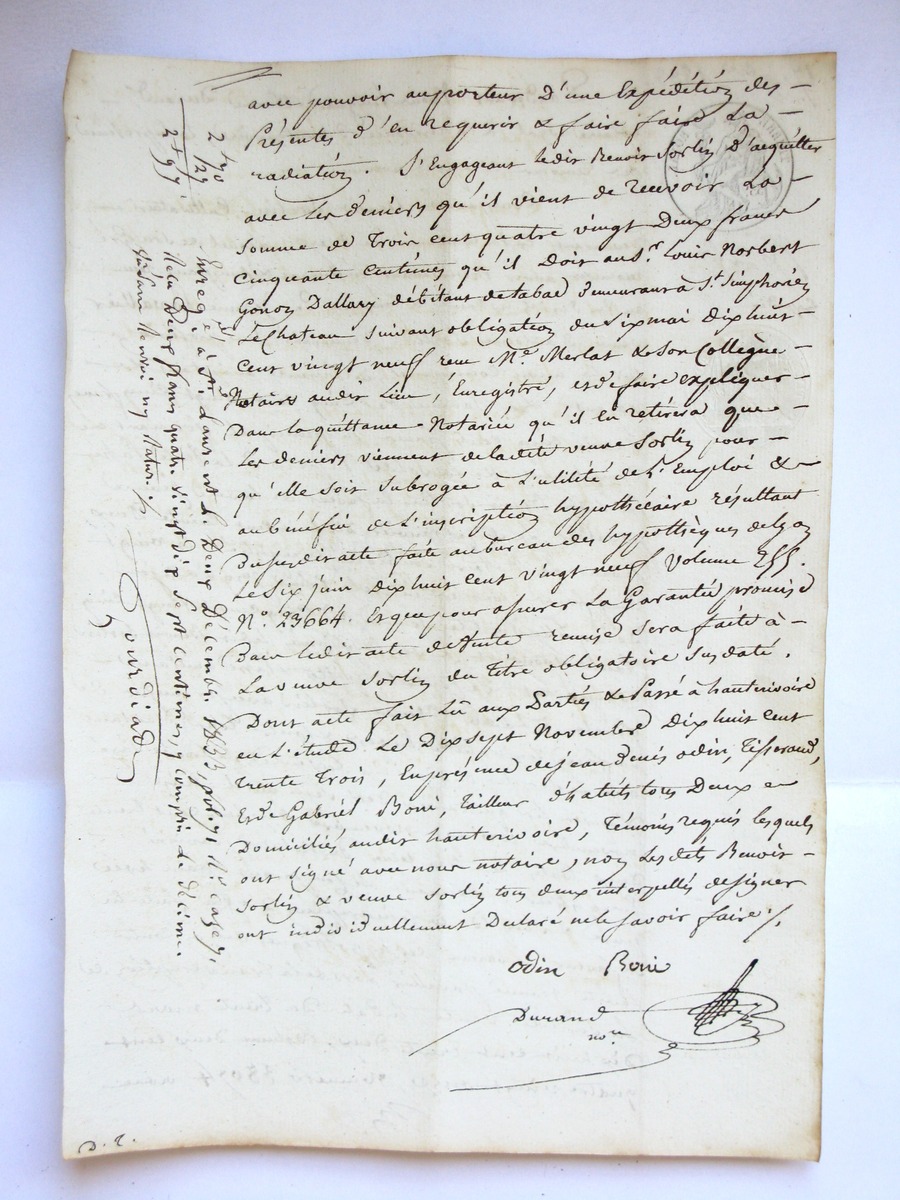 avec pouvoir au porteur D'une Expédition des
Présentes d'en requerir & faire faire La
radiation. S'Engageant ledit Benoit Sorlin D'acquitter
avec les deniers qu'il vient de recevoir La
Somme de Trois cent quatre vingt Deux francs
Cinquante Centimes qu'il Doit au Sr. Louis Norbert
Gonon Dallary débitant de tabac demeurant à St. Simphorien
Le Chateau suivant obligation du Six mai dix huit
Cent vingt neuf reçu Me. Merlat & Son Collègue
Notaires audit Lieu, Enregistré, et de faire expliquer
Dans la quittance Notariée qu'il en retirera que
Les deniers viennent de la dite veuve Sorlin pour
qu'elle soit subrogée à L'utilité de L'Emploi &
au bénéfice de L'inscription hypothécaire résultant
Du susdit acte faite au bureau des hypothèques de Lyon
Le Six juin dix huit cent vingt neuf volume 255.
No. 23664. Et que pour assurer La Garantie promise
Dans ledit acte de vente remise sera faite à
La veuve Sorlin du Titre obligatoire susdaté.
Dont acte fait Lû aux Parties & Passé à hauterivoire
en L'étude Le Dix sept Novembre Dix huit cent
trente Trois, En présence de jean denis odin, Tisserand,
Et de Gabriel Boni, Tailleur d'habits tous Deux
Domiciliés audit hauterivoire, Témoins requis lesquels
ont signé avec nous notaire, non Les dits Benoit
Sorlin & veuve Sorlin tous deux interpellés de signer
ont individuellement Declaré ne le savoir faire ./.
odin Boni
Durand
nore
2 70
27
2f 97
Enregé. à St. Laurent L. Deux Décembre 1833, fol. 71 Ro. case 7,
Reçu Deux francs quatre vingt dix sept centimes, y compris le décime.
Gourdiad
D. 2.